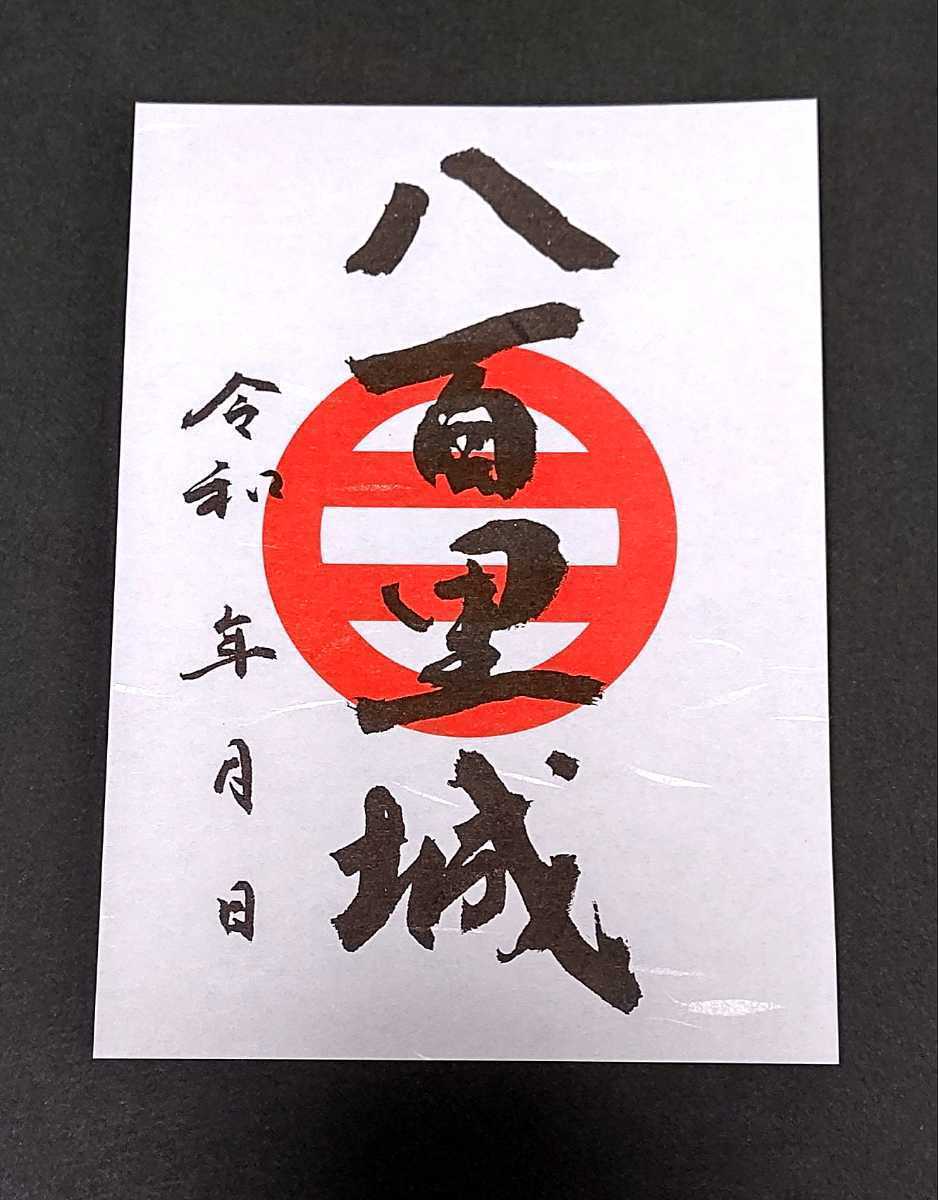 八百里城
令和 年 月 日